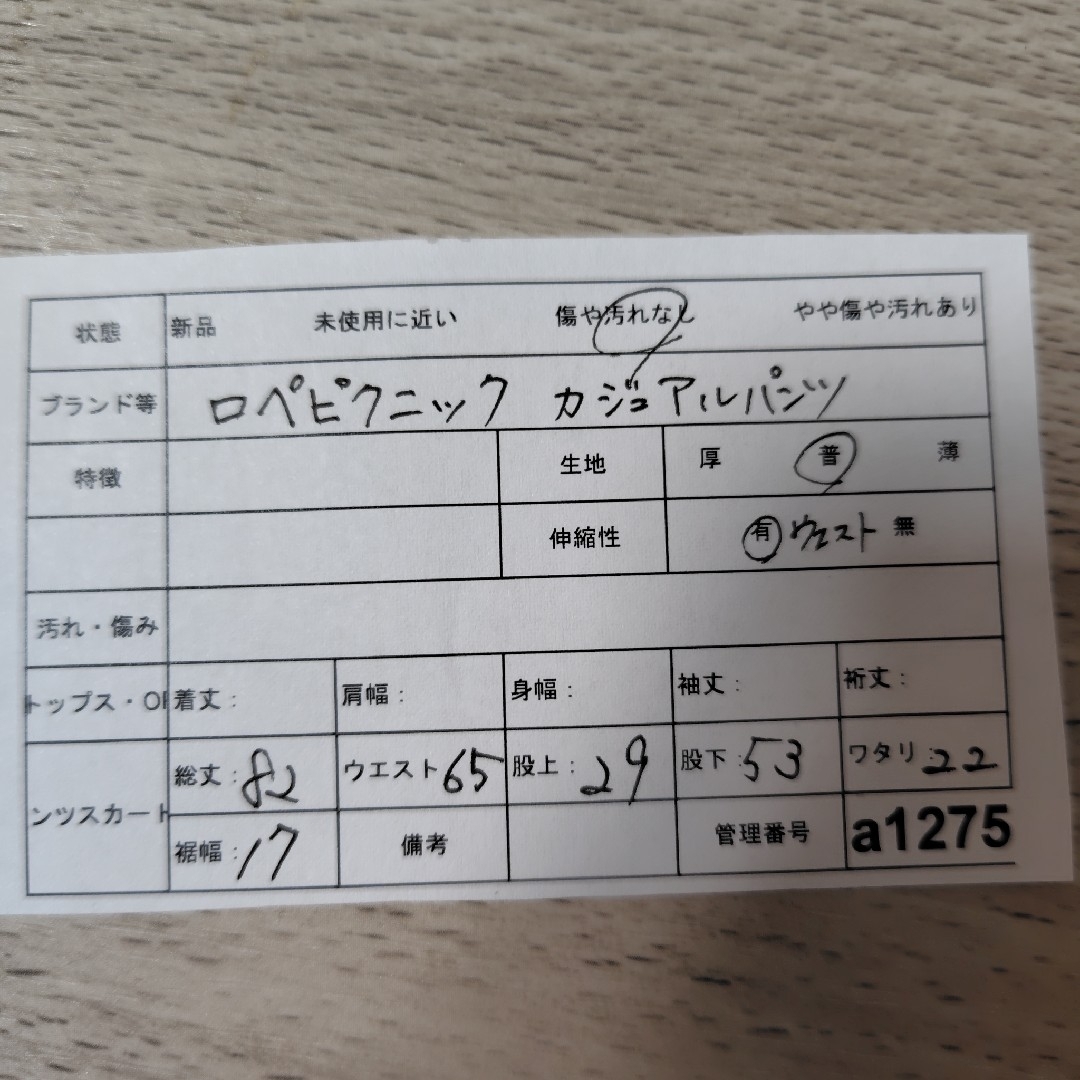 状態 新品 未使用に近い 傷や汚れなし やや傷や汚れあり
ブランド等 ロペピクニック カジュアルパンツ
特徴 生地 厚 普 薄
伸縮性 有 ウエスト 無
汚れ・傷み
トップス・OP 着丈: 肩幅: 身幅: 袖丈: 裄丈:
ンツスカート 総丈:82 ウエスト65 股上:29 股下:53 ワタリ:22
裾幅:17 備考 管理番号 a1275